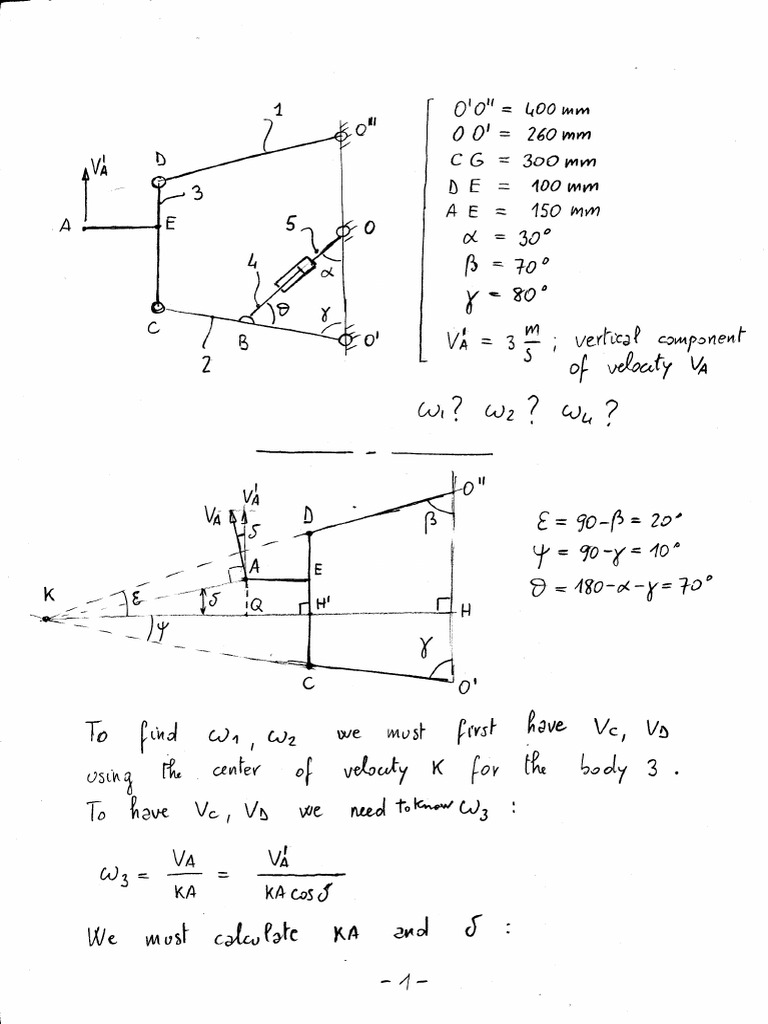 1
O'''
D
V'A
3
A
E
5
O
α
4
θ
γ
C
B
O'
2
O'O" = 400 mm
O O' = 260 mm
C G = 300 mm
D E = 100 mm
A E = 150 mm
α = 30°
β = 70°
γ = 80°
V'A = 3 m/s ; vertical component
of velocity VA
ω1 ? ω2 ? ω4 ?
O"
V'A
VA
D
β
δ
A
E
K
ε
δ
Q
H'
H
ψ
γ
C
O'
ε = 90-β = 20°
ψ = 90-γ = 10°
θ = 180-α-γ = 70°
To find ω1, ω2 we must first have Vc, VD
using the center of velocity K for the body 3.
To have Vc, VD we need to know ω3 :
ω3 = VA/KA = V'A/KA cos δ
We must calculate KA and δ :
-1-